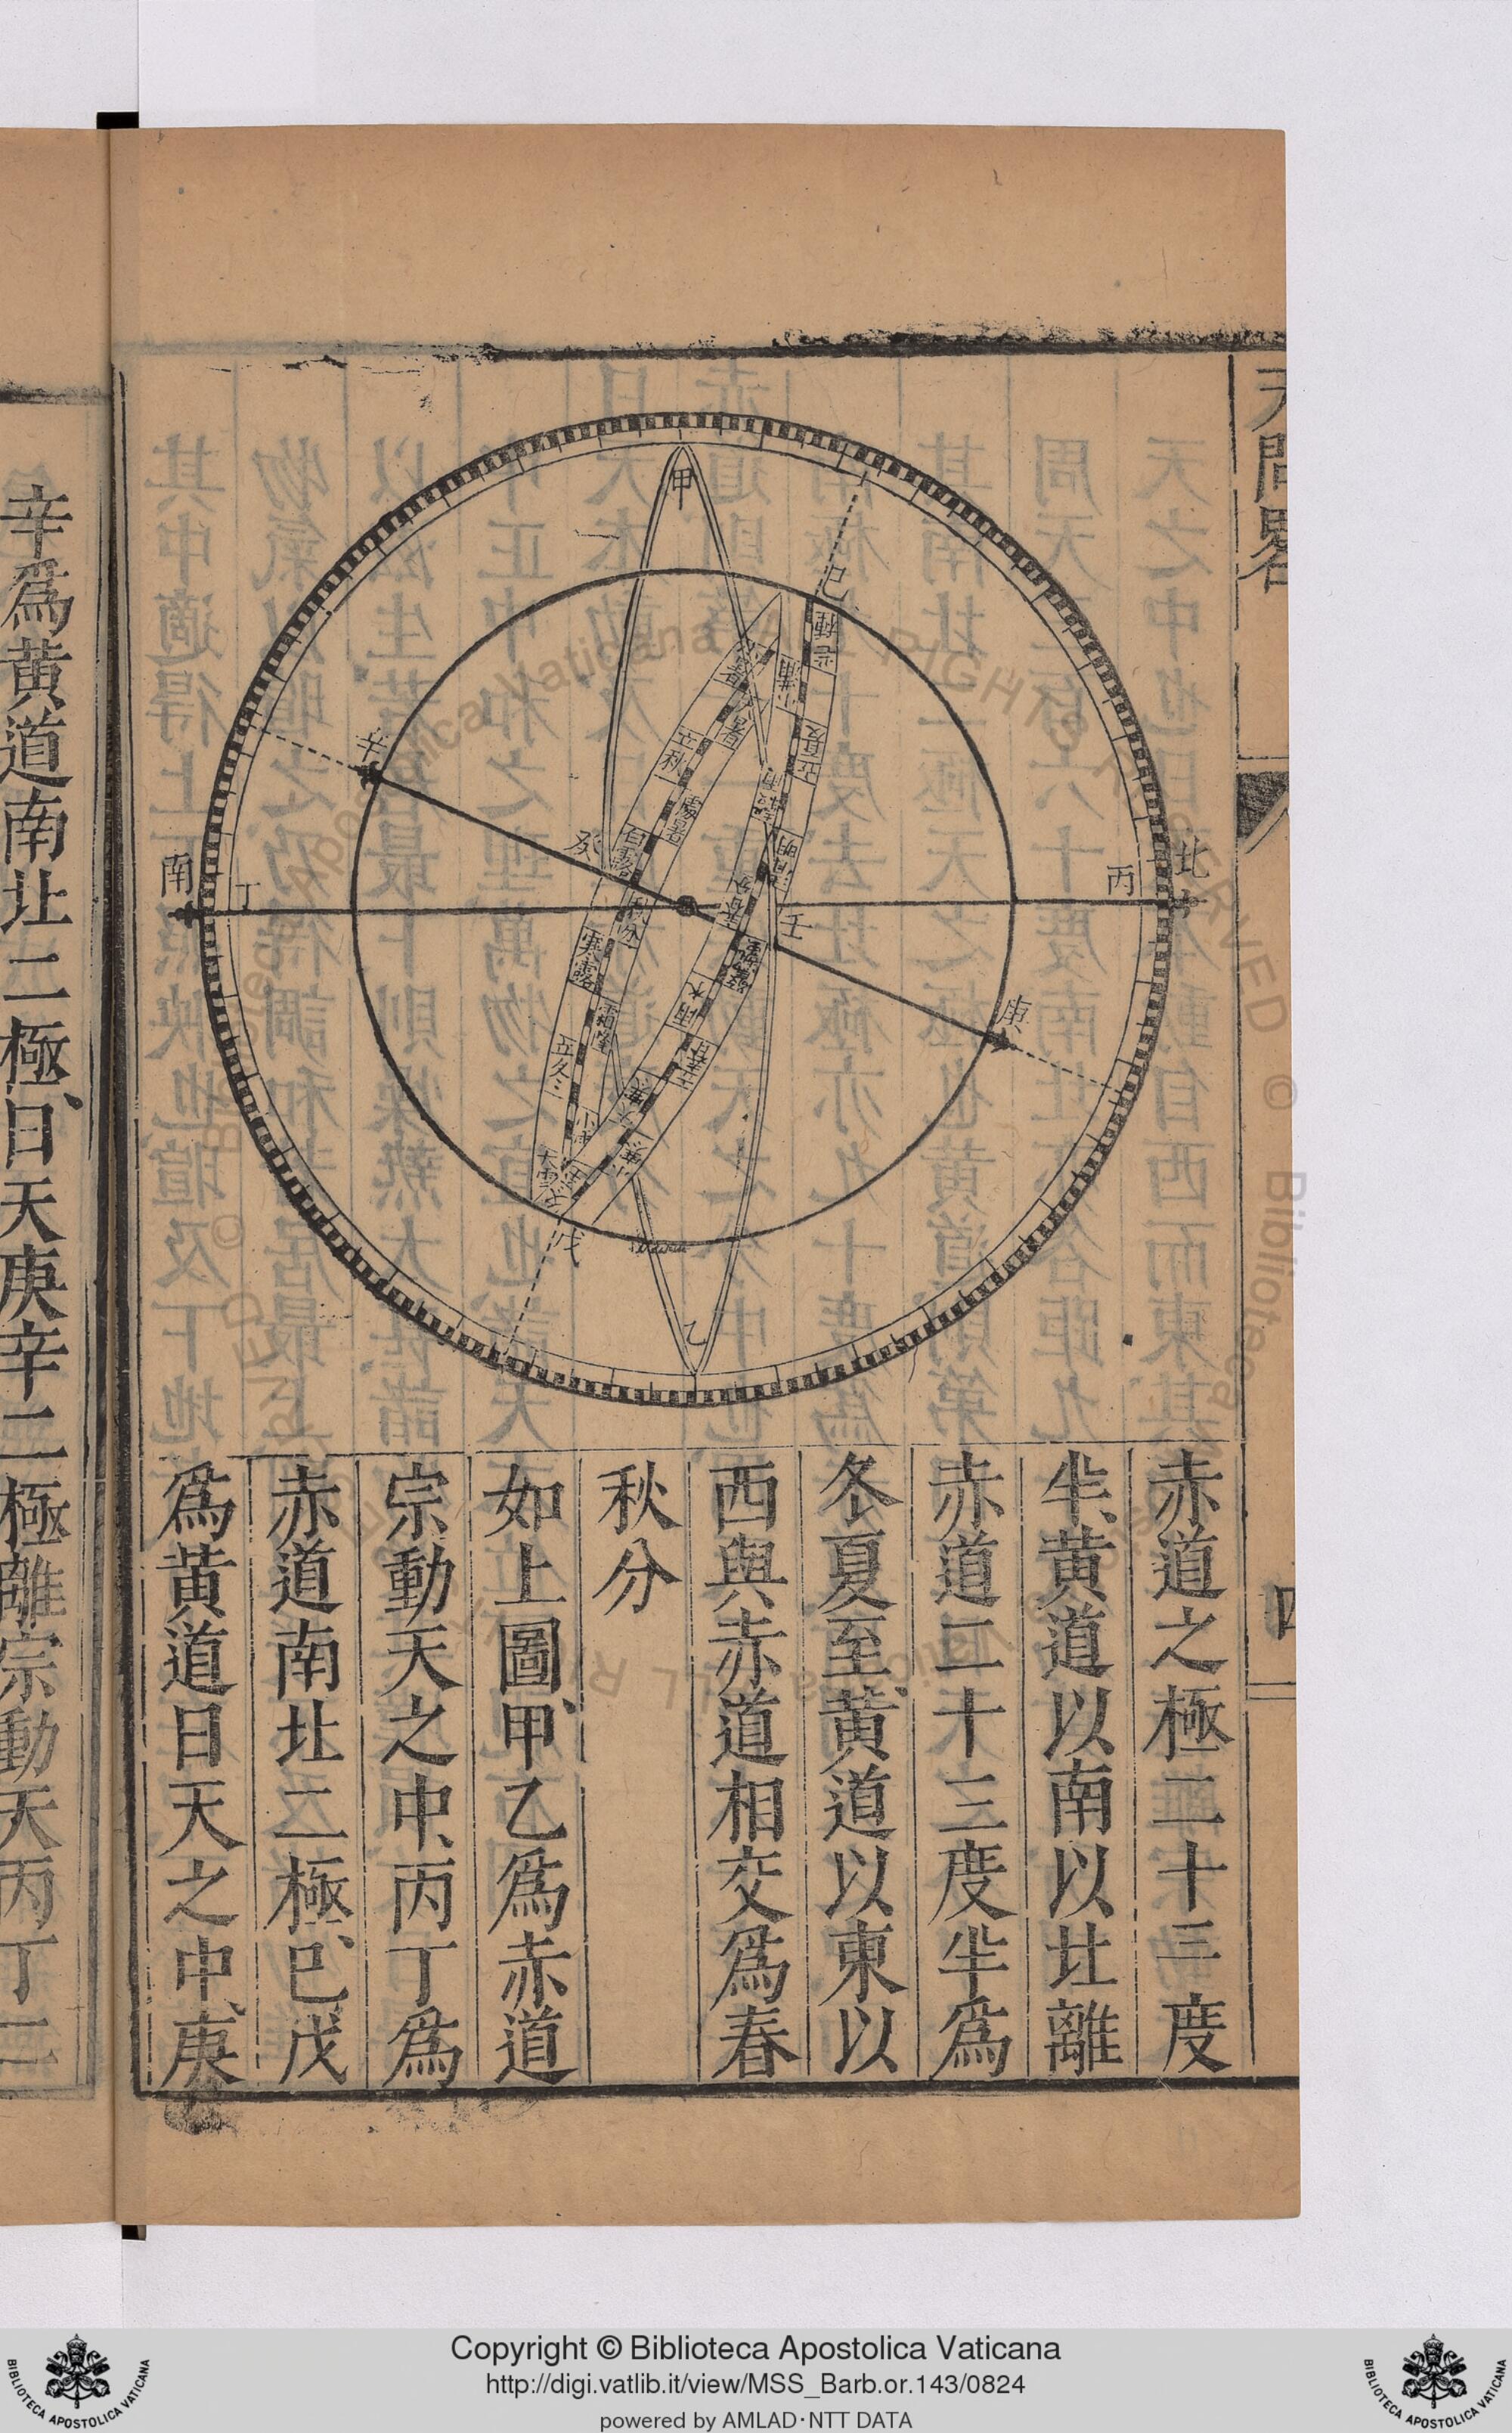 天問畧
四
甲
巳
辛
癸
南
丁
丙
北
壬
庚
戊
乙
立秋
處暑
白露
秋分
寒露
霜降
立冬
小雪
大雪
赤道之極二十三度
半、黄道以南以北離
赤道二十三度半爲
冬夏至、黄道以東以
西與赤道相交爲春
秋分
如上圖、甲乙爲赤道
宗動天之中、丙丁爲
赤道南北二極、巳戊
爲黄道日天之中、庚
辛爲黄道南北二極、日天庚辛二極離宗動天丙丁二
Copyright © Biblioteca Apostolica Vaticana
http://digi.vatlib.it/view/MSS_Barb.or.143/0824
powered by AMLAD·NTT DATA
BIBLIOTECA APOSTOLICA VATICANA
BIBLIOTECA APOSTOLICA VATICANA